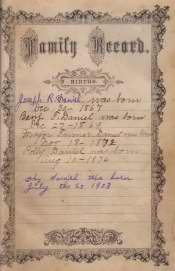 Family Record.
BIRTHS.
Joseph R. Daniel was born
Dec 30 - 1867
Benj F. Daniel was born
27 - 1869
Daniel was born
Nov 18 - 1872
Polly Daniel was born
Aug 10 - 1874
Daniel was born
July the 20 1903